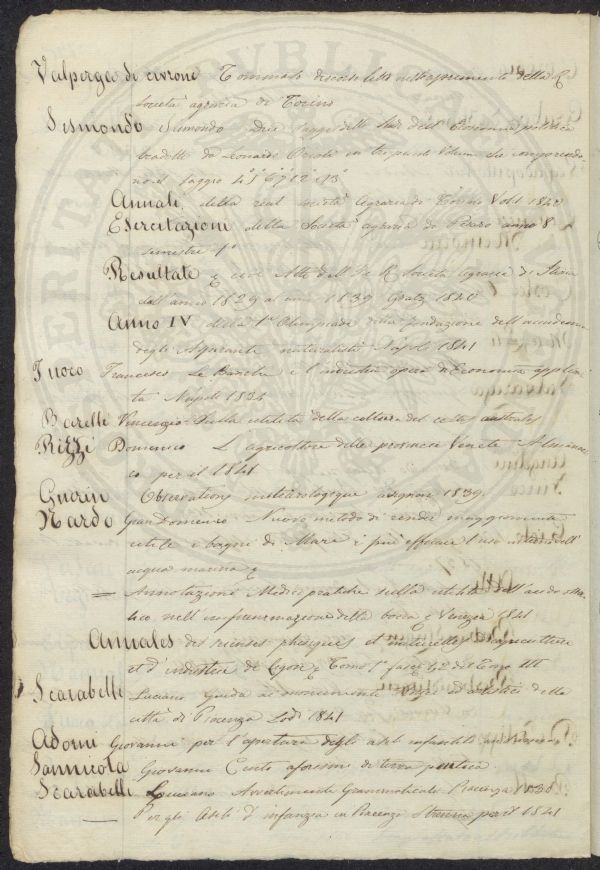 Valperga di civrone Tommaso discorso letto nell'aprimento della R
Società agraria di Torino
Sismondo Sismondo dell' Economia politica
tradotti da Leonardo in tre punti Volumi che comprendono
no il saggio 4° 6° 9° 12° 13°
Annali della real società Agraria di Torino Vol 1 1840
Esercitazioni della Società agraria di Pesaro anno 8
semestre 1°
Resultate e cive Atte dell I e R Società Agraria di Stiria
dall'anno 1829 al 1839 Gratz 1840
Anno IV della 1a Olimpiade della fondazione dell'accademia
degli Aspiranti naturalisti Napoli 1841
Fuoco Francesco Le Banche e l'industria opera d'Economia applica
ta Napoli 1834
Barelli Vincenzo Sulla utilità della coltura del australe
Rizzi Domenico L agricoltore delle provincie Venete Almanac
co per il 1841
Guerin Observations météorologique avignon 1839
Nardo Gian Domenico Nuovo metodo di render maggiormente
utile i bagni di Mare e più efficace l'uso interno dell'
acqua marina e
= Annotazione Medico pratiche sulla utilità dell'acido
nell' della bocca Venezia 1841
Annales des sciences phisiques et naturelles d'agriculture
et d'industrie de Lyon Tomo 1° fasc 1, 2 del Tomo III
Scarabelli Luciano Guida ai monumenti storici ed artistici della
città di Piacenza Lodi 1841
Adorni Giovanni per l'apertura degli asili infantili
Sannicola Giovanni Cento aforismi di terra pratica
Scarabelli Luciano Avvedimenti Grammaticali Piacenza 1838
— Per gli Asili d'infanzia in Piacenza Strenna per il 1841